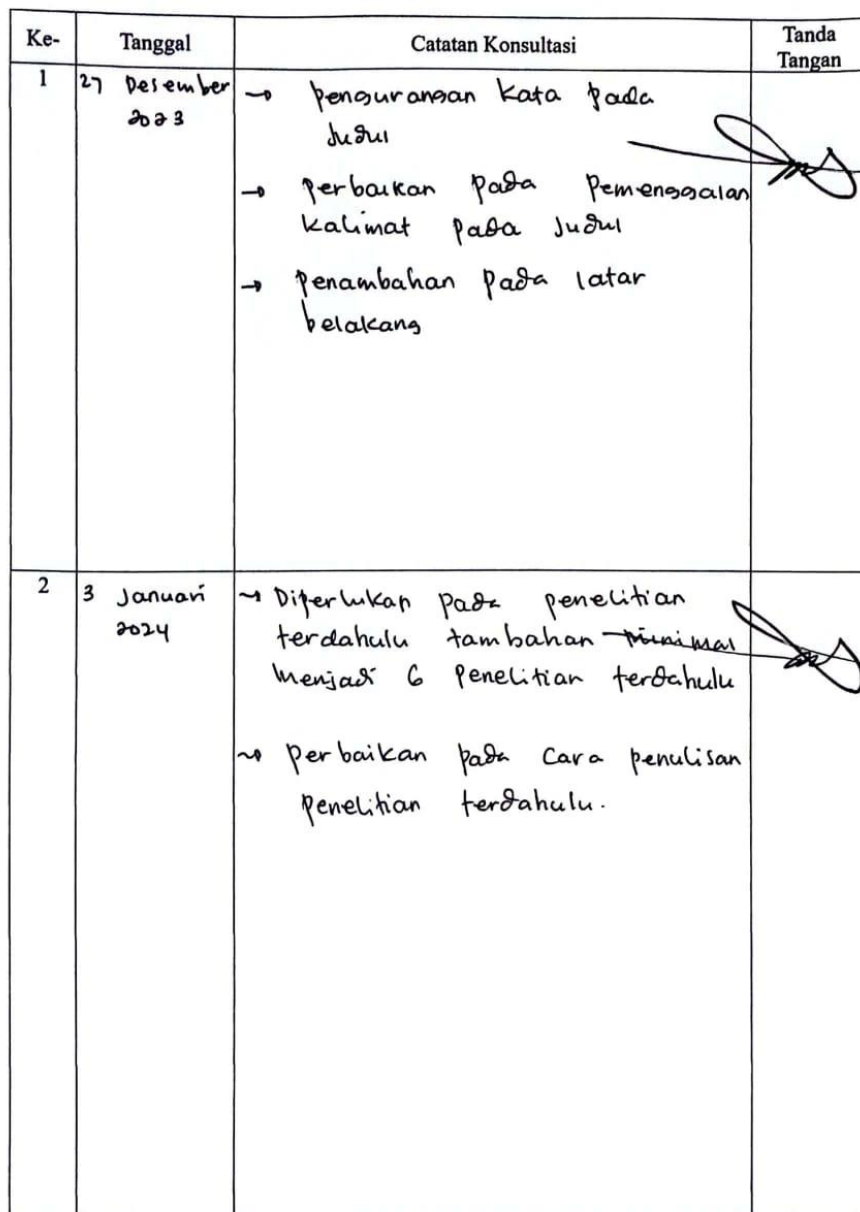 Ke- Tanggal Catatan Konsultasi Tanda Tangan
1 27 Desember 2023
→ pengurangan kata pada
Judul
→ perbaikan pada Pemenggalan
kalimat pada Judul
→ penambahan pada latar
belakang
2 3 Januari 2024
→ Diperlukan pada penelitian
terdahulu tambahan minimal
menjadi 6 Penelitian terdahulu
→ perbaikan pada Cara penulisan
Penelitian terdahulu.